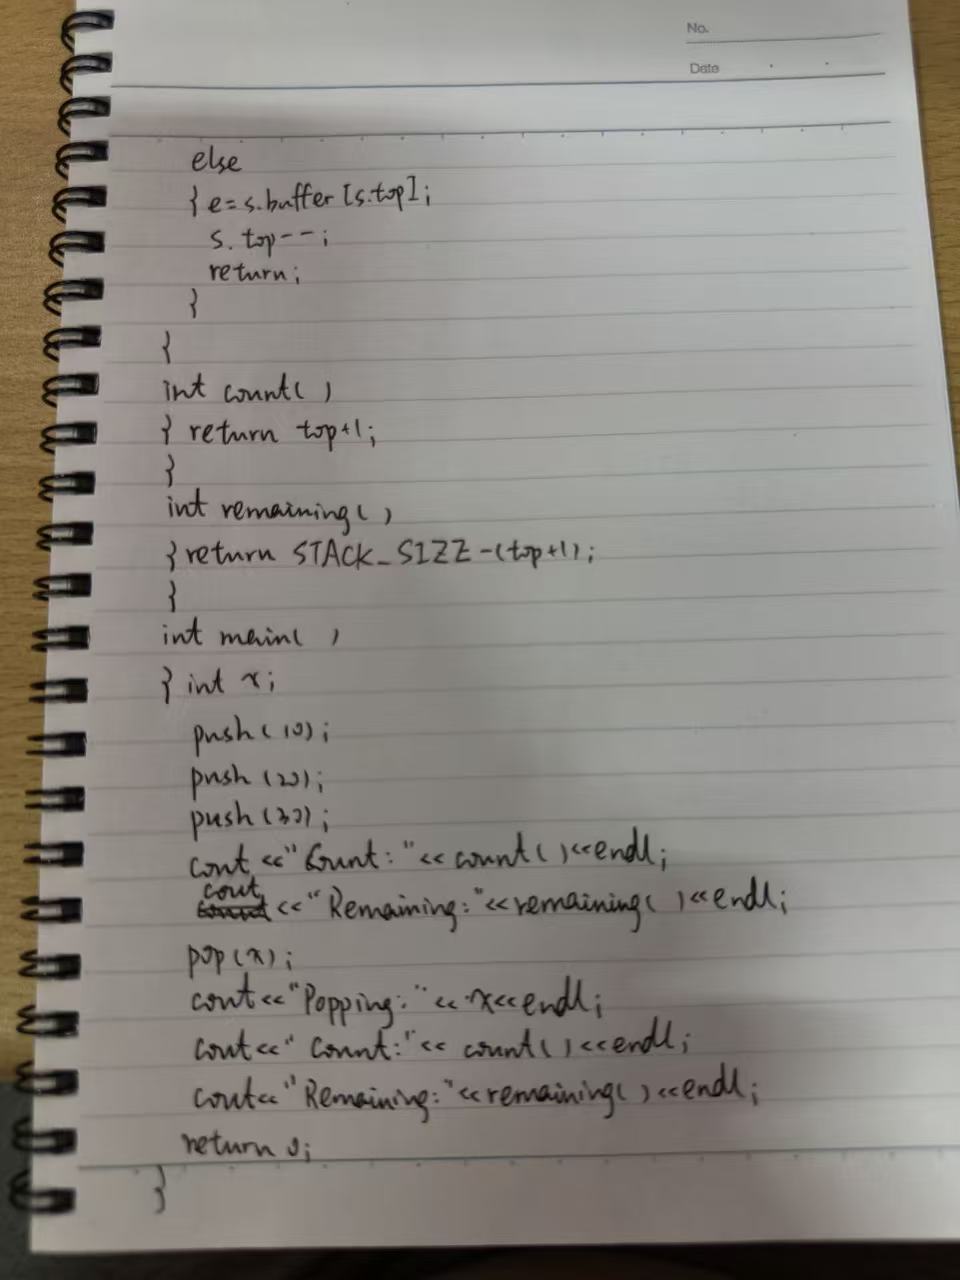 No.
Date
else
{ e=s.buffer[s.top];
s.top--;
return;
}
}
int count( )
{ return top+1;
}
int remaining( )
{ return STACK_SIZE-(top+1);
}
int main( )
{ int x;
push(10);
push(20);
push(30);
cout<<"Count:"<<count( )<<endl;
cout<<"Remaining:"<<remaining( )<<endl;
pop(x);
cout<<"Popping:"<<x<<endl;
cout<<"Count:"<<count( )<<endl;
cout<<"Remaining:"<<remaining( )<<endl;
return 0;
}